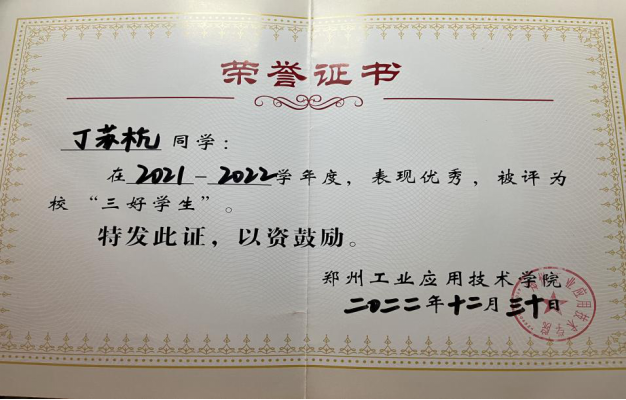 荣誉证书
丁苏杭 同学：
在 2021-2022 学年度，表现优秀，被评为
校“三好学生”。
特发此证，以资鼓励。
郑州工业应用技术学院
二〇二二年十二月三十日